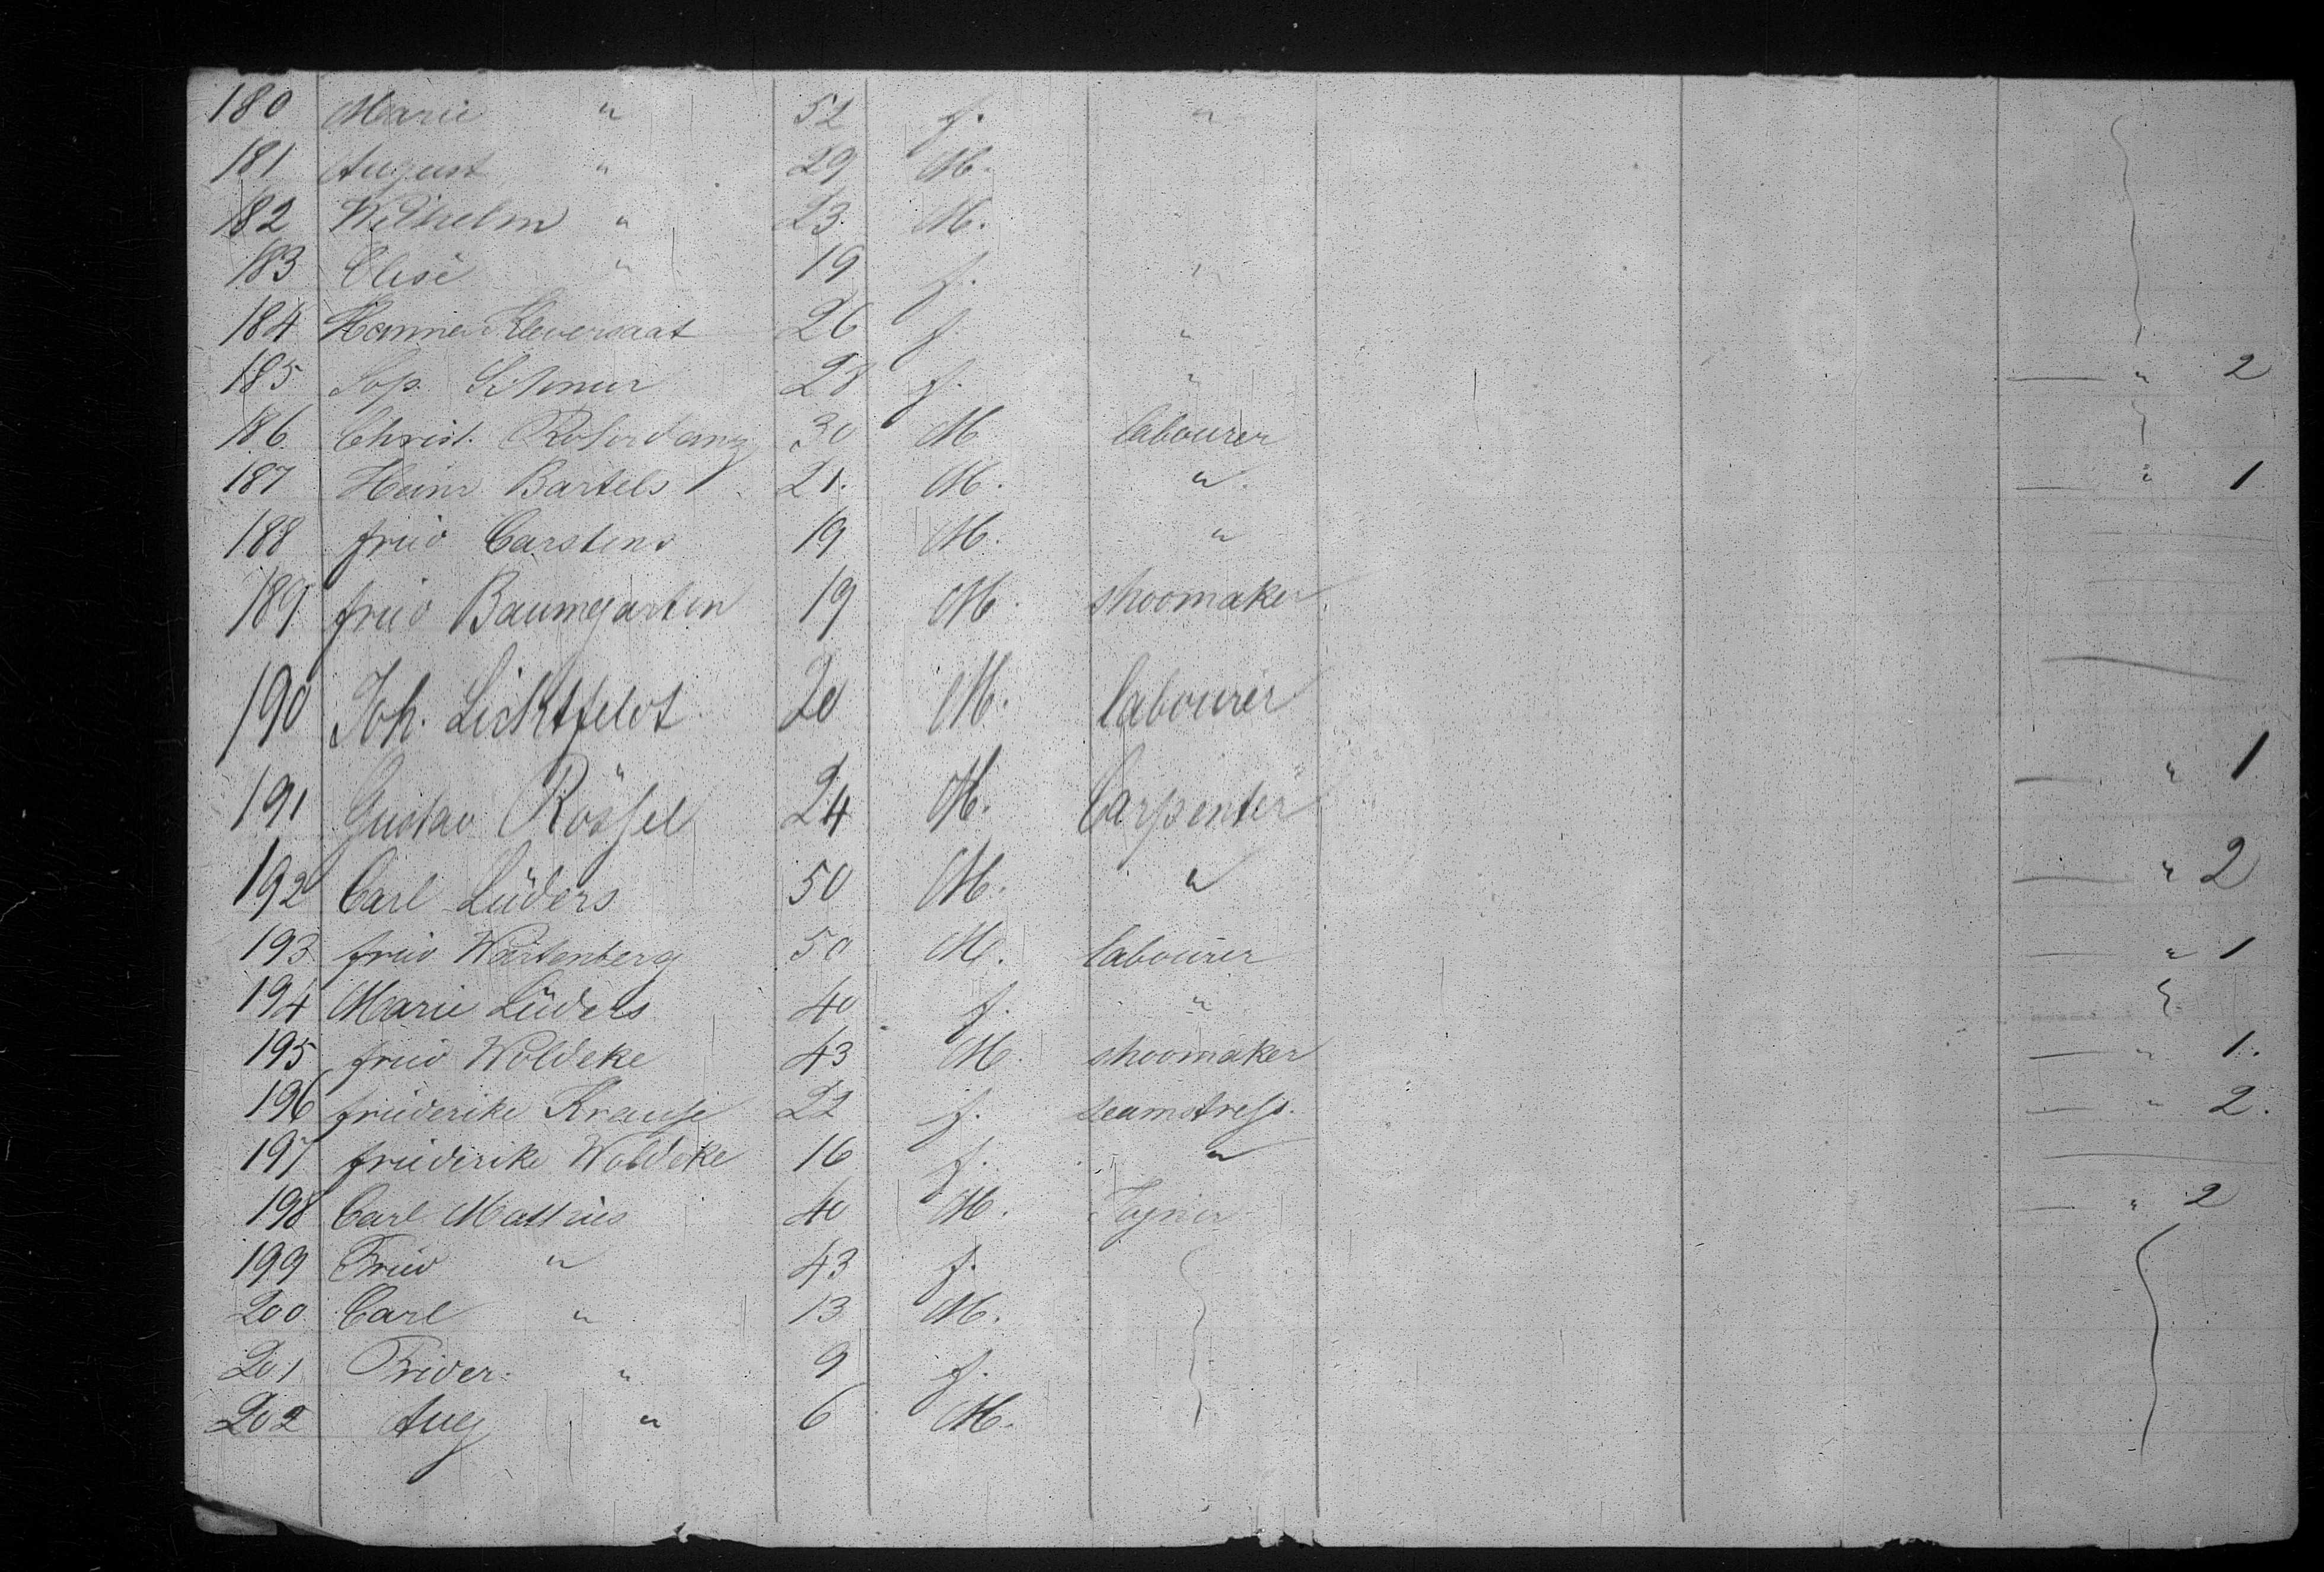 180 Marie " 52 f. "
181 August " 29 M.
182 Wilhelm " 23. M.
183 Elise " 19 f. "
184 Hanne Kleversaat 26 f. "
185 Sop. 28 f. " " 2
186 Christ. 30 M labourer
187 Heinr Bartels 21. M. " " 1
188 fried Carstens 19 M. "
189 fried Baumgarten 19 M. shoomaker
190 Joh. Lichtfeldt 20 M. labourer
191 Gustav Rössel 24 M. Carpenter " 1
192 Carl Lüders 50 M. " " 2
193 fried Wartenberg 50 M. labourer " 1
194 Marie Lüders 40 f. "
195 fried Woldeke 43 M. shoomaker " 1.
196 friederike Krause 22 f. seamstress. " 2.
197 friederike Woldeke 16 f. "
198 Carl Matthies 40 M. Joyner " 2
199 Fried " 43 f.
200 Carl " 13 M.
201 Frieder. " 9 f.
202 Aug " 6 M.